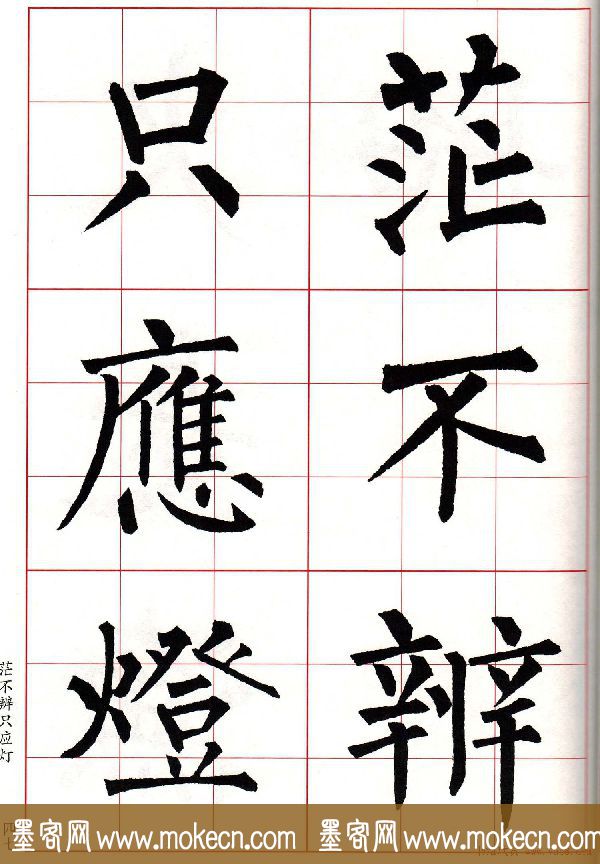 茫不辨
只應燈
茫不辨只应灯
墨客网 www.mokecn.com 墨客网 www.mokecn.com